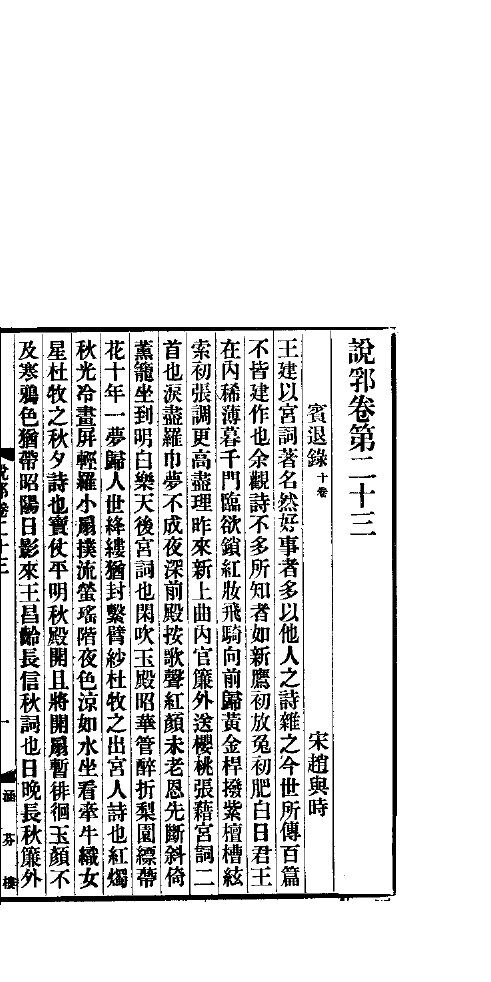 說郛卷第二十三
賓退錄 十卷 宋趙與時
王建以宮詞著名然好事者多以他人之詩雜之今世所傳百篇
不皆建作也余觀詩不多所知者如新鷹初放兔初肥白日君王
在內稀薄暮千門臨欲鎖紅妝飛騎向前歸黃金桿撥紫檀槽絃
索初張調更高盡理昨來新上曲內官簾外送櫻桃張藉宮詞二
首也淚盡羅巾夢不成夜深前殿按歌聲紅顏未老恩先斷斜倚
薰籠坐到明白樂天後宮詞也閑吹玉殿昭華管醉折梨園縹蔕
花十年一夢歸人世絳縷猶封繫臂紗杜牧之出宮人詩也紅燭
秋光冷畫屏輕羅小扇撲流螢瑤階夜色涼如水坐看牽牛織女
星杜牧之秋夕詩也寶仗平明秋殿開且將開扇暫徘徊玉顏不
及寒鴉色猶帶昭陽日影來王昌齡長信秋詞也日晚長秋簾外
說郛卷二十三 一 涵芬樓